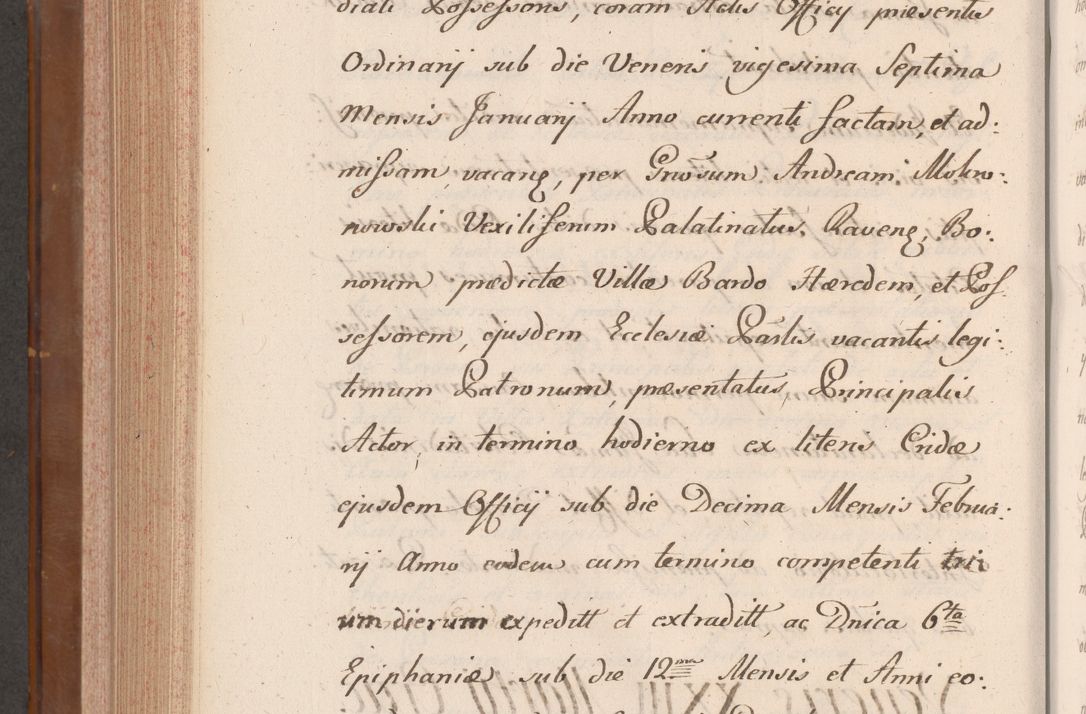 diali Possessoris, coram Actis Officij præsentis
Ordinarij sub die Veneris vigesima Septima
Mensis Januarij Anno currenti factam, et ad:
missam, vacans, per Gnosum Andream Mokro:
nowski Vexiliferum Palatinatus Ravens, Bo:
norum prædictæ Villæ Bardo Hæredem, et Pos
sessorem, ejusdem Ecclesiæ Parlis vacantis legi:
timum Patronum, præsentatus, Principalis
Actor, in termino hodierno ex literis Cridæ
ejusdem Officij sub die Decima Mensis Februa:
rij Anno eodem cum termino competenti tri
um dierum expeditt et extraditt, ac Dnica 6ta
Epiphaniæ sub die 12ma Mensis et Anni eo: